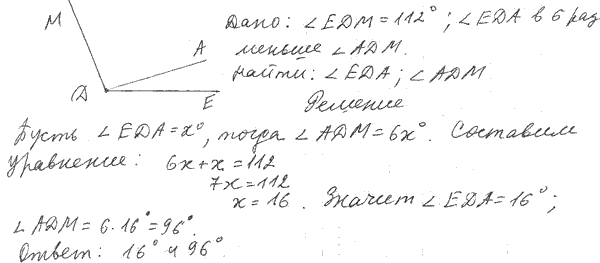 M
A
D
E
Дано: ∠EDM = 112°; ∠EDA в 6 раз
меньше ∠ADM.
Найти: ∠EDA; ∠ADM
Решение
Пусть ∠EDA = x°, тогда ∠ADM = 6x°. Составим
уравнение: 6x + x = 112
7x = 112
x = 16. Значит ∠EDA = 16°;
∠ADM = 6·16° = 96°.
Ответ: 16° и 96°